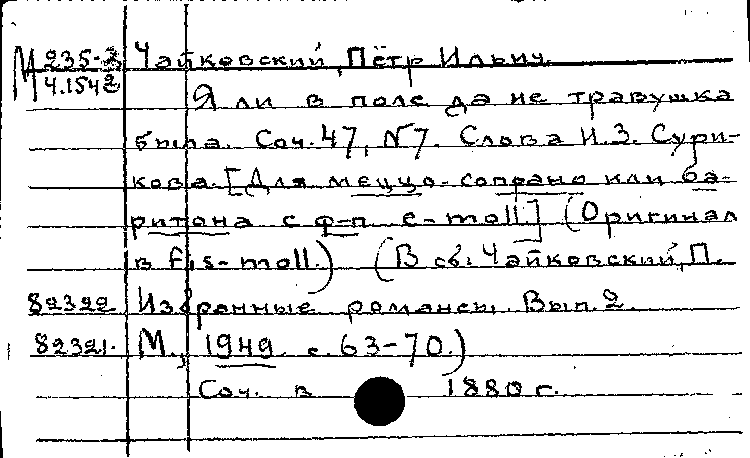 М 235-3 Чайковский, Пётр Ильич.
Ч.1542
Я ли в поле да не травушка
была. Соч. 47, N7. Слова И.З. Сури-
кова. [Для меццо-сопрано или ба-
ритона с ф-п e-moll] (Оригинал
в fis-moll.) (В сб: Чайковский, П.
82322 Избранные романсы. Вып. 2.
82321. М., 1949 с. 63-70.)
Соч. в 1880 г.